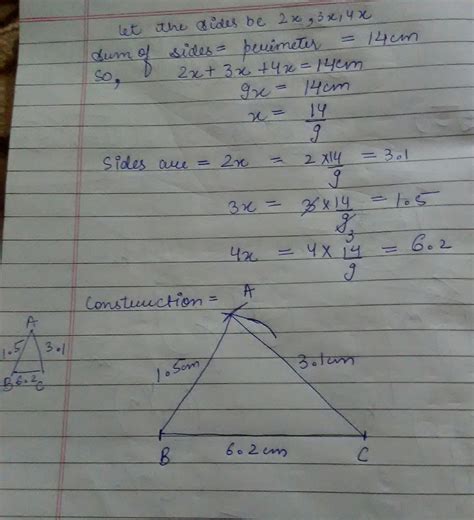 let the sides be 2x, 3x, 4x
Sum of sides = perimeter = 14cm
So, 2x + 3x + 4x = 14cm
9x = 14cm
x = 14/9
Sides are = 2x = 2 × 14/9 = 3.1
3x = 3 × 14/9 3 = 1.5
4x = 4 × 14/9 = 6.2
Construction =
A
1.5cm
3.1cm
B
6.2cm
C
A
1.5
3.1
B
6.2
C